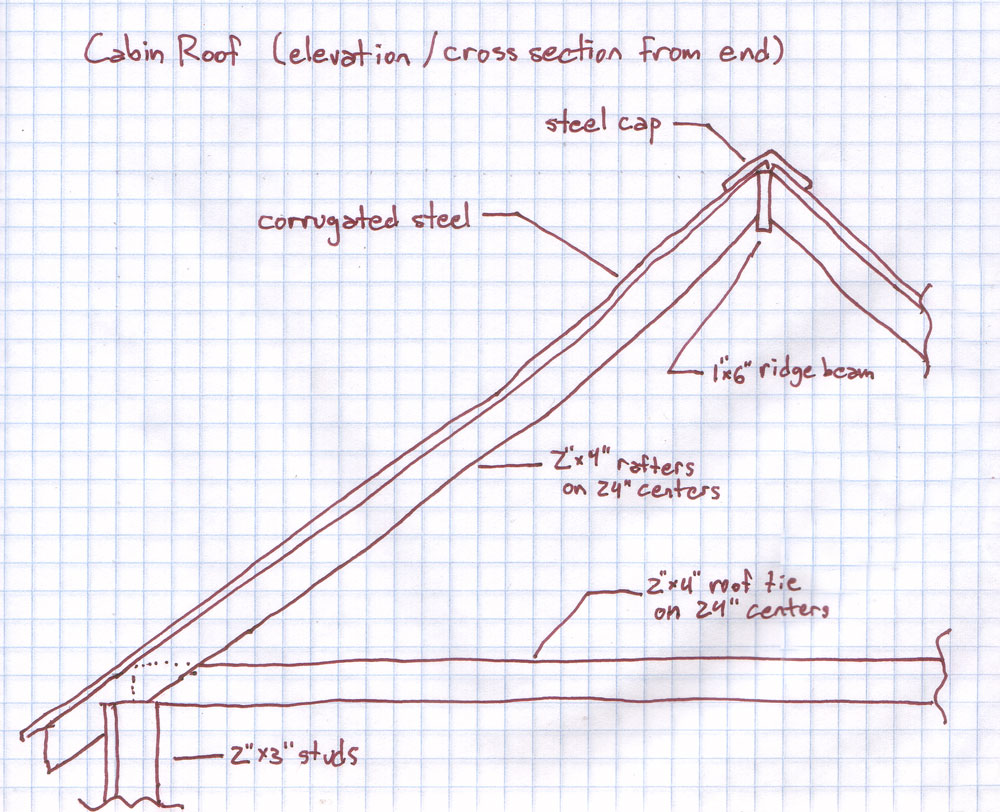 Cabin Roof (elevation / cross section from end)
steel cap
corrugated steel
1"x6" ridge beam
2"x4" rafters
on 24" centers
2"x4" roof tie
on 24" centers
2"x3" studs